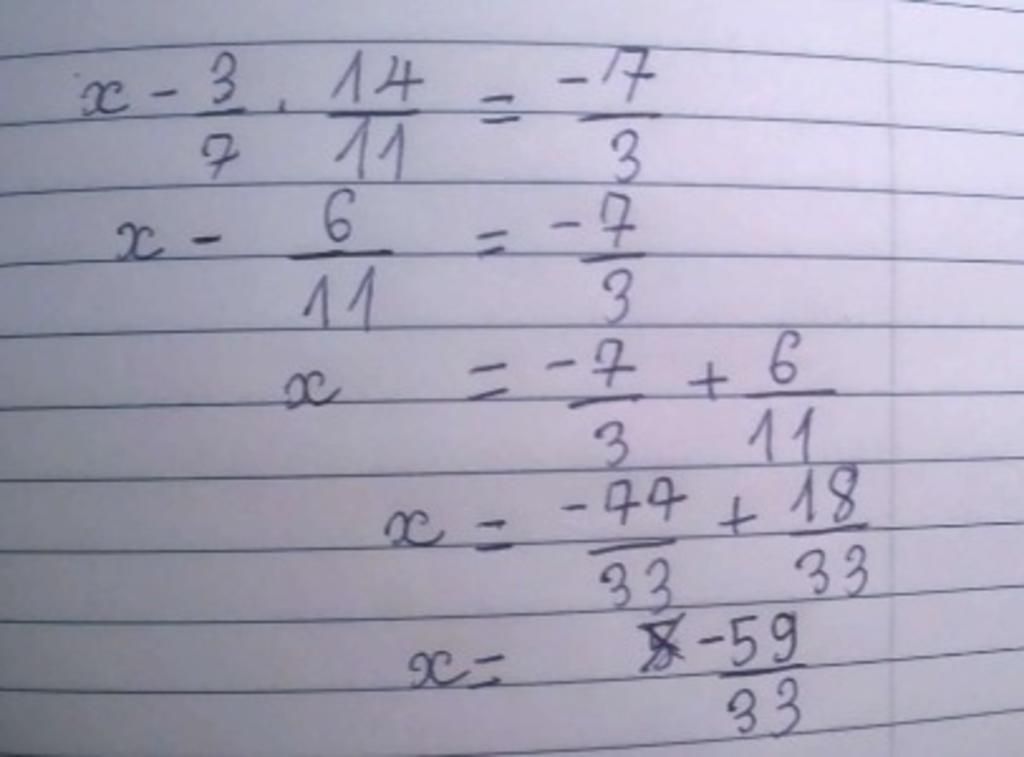 x - 3/7 . 14/11 = -7/3
x - 6/11 = -7/3
x = -7/3 + 6/11
x = -77/33 + 18/33
x = -59/33